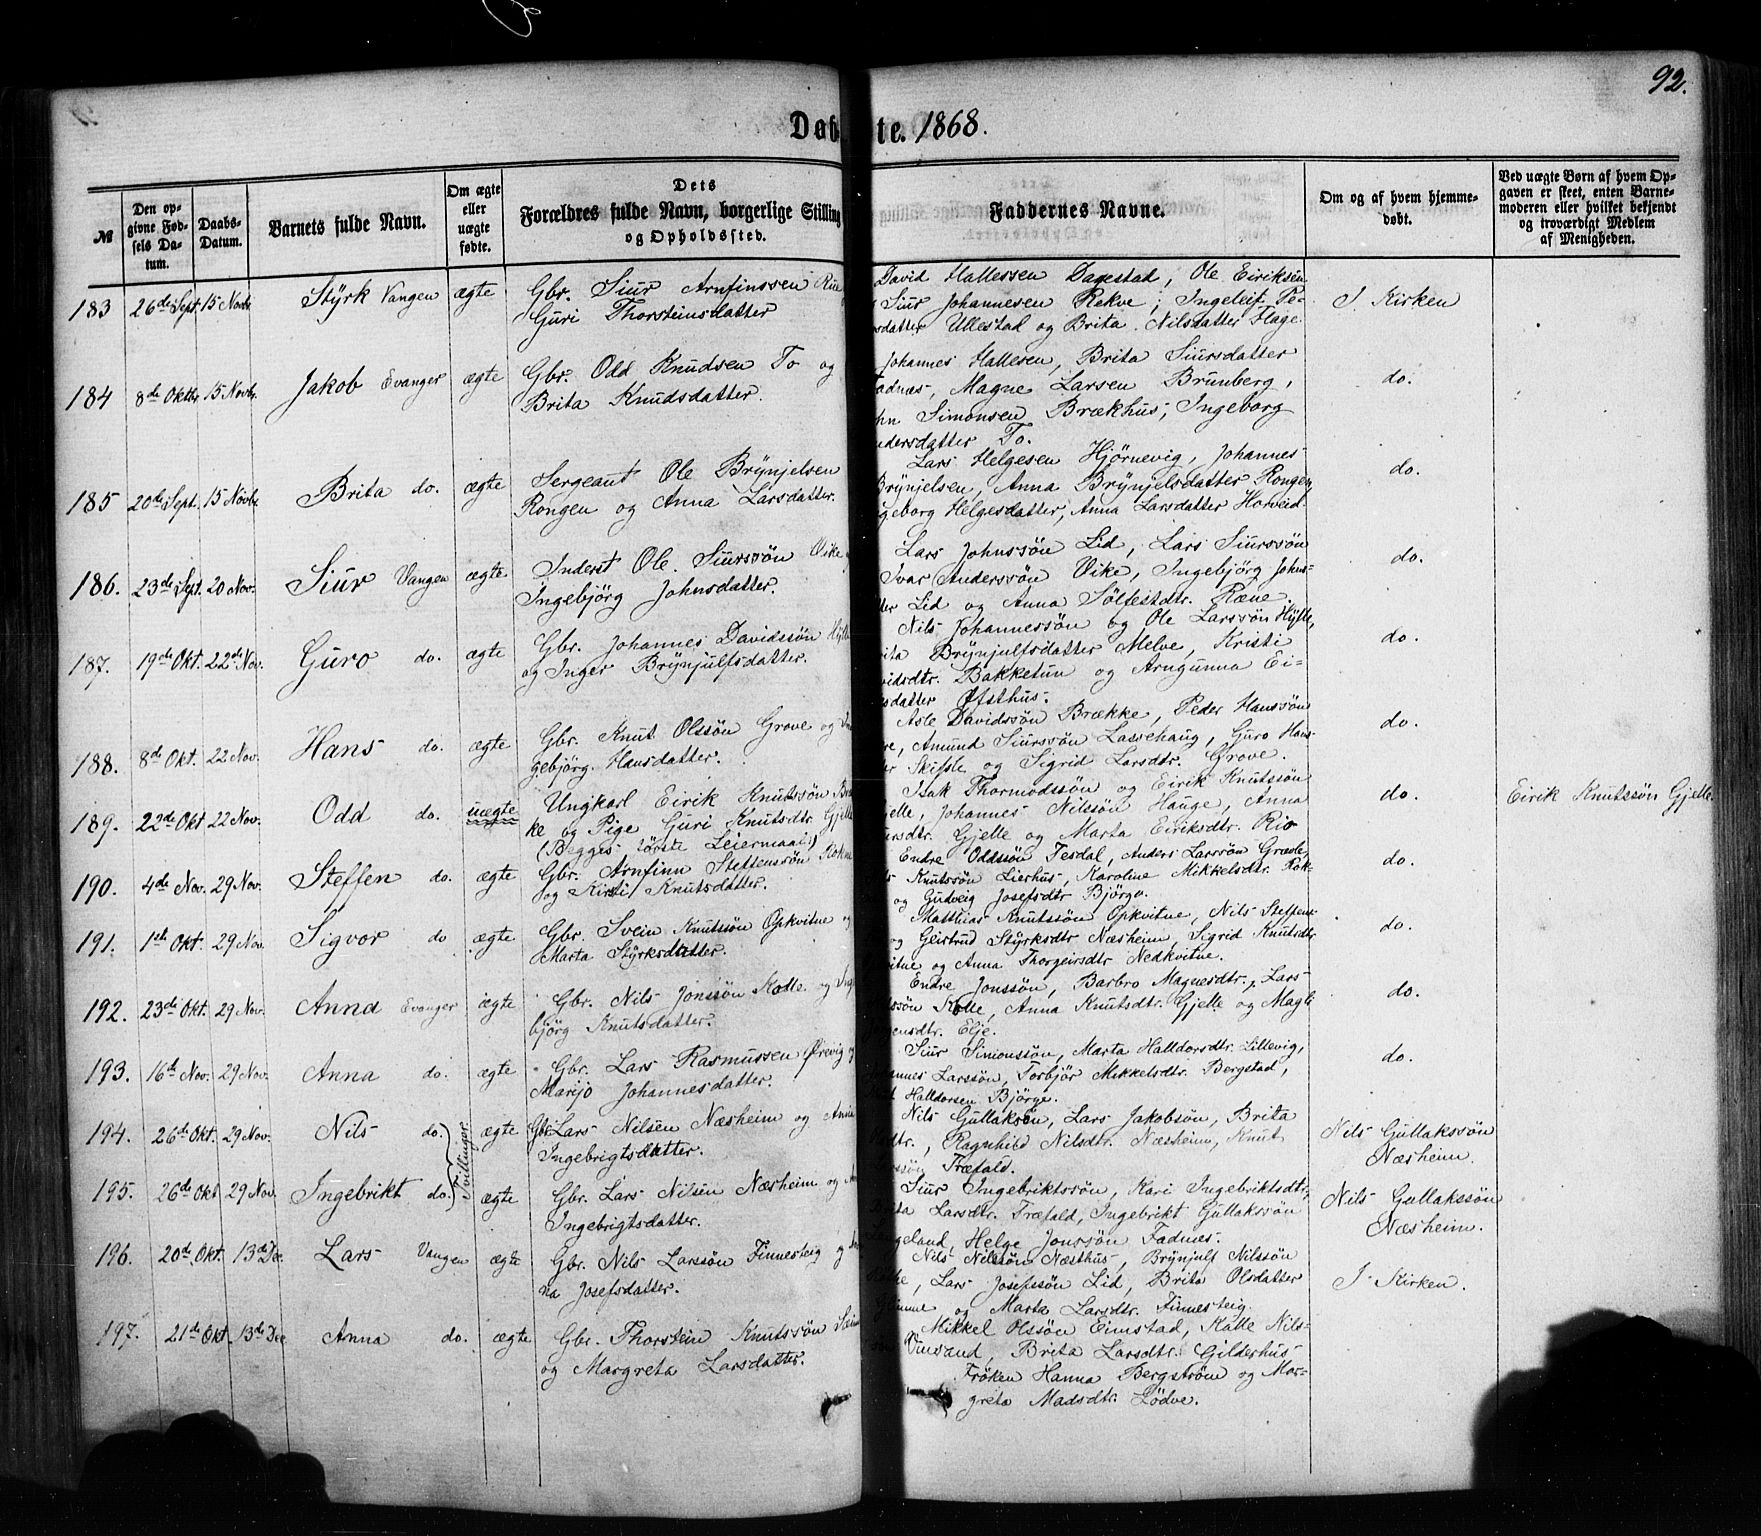 92.
Døb te. 1868.
№
Den opgivne Fødsels Datum.
Daabs-Datum.
Barnets fulde Navn.
Om ægte eller uægte fødte.
Dets Forældres fulde Navn, borgerlige Stilling og Opholdssted.
Faddernes Navne.
Om og af hvem hjemmedøbt.
Ved uægte Børn af hvem Opgaven er skeet, enten Barnemoderen eller hvilket bekjendt og troværdigt Medlem af Menigheden.
183 26de Sept. 15 Novbr. Styrk Vangen ægte Gbr. Siur Arnfinssen
Guri Thorsteinsdatter
David Hallessen Dagestad, Ole Eiriksen
Siur Johannesen Rekve; Ingeleif Pe-
datter Ullestad og Brita Nilsdatter Flage.
I Kirken
184 8de Oktbr. 15 Novbr. Jakob Evanger ægte Gbr. Odd Knudsen To og
Brita Knudsdatter.
Johannes Hallesen, Brita Siursdatter
Fadnæs, Magne Larsen Brunberg,
Simonsen Brækhus, Ingeborg
ndersdatter To.
do.
185 20de Sept. 15 Novbr. Brita do. ægte Sergeant Ole Brynjelsen
Rongen og Anna Larsdatter.
Lars Helgesen Hjørnevig, Johannes
Brynjelsen, Anna Brynjelsdatter Rongen,
geborg Helgesdatter, Anna Larsdatter Horveid.
do.
186. 23de Sept. 20 Nov. Siur Vangen ægte Inderst Ole Siurssön Vike
Ingebjörg Johnsdatter.
Lars Johnssön Lid, Lars Siurssön
Ivar Anderssön Vike, Ingebjörg Johns-
Lid og Anna Sölfestdtr. Ræne.
do.
187. 19de Okt. 22de Nov. Guro do. ægte Gbr. Johannes Davidssön
og Inger Brynjulfsdatter.
Nils Johannessön og Ole Larssön Hylle,
rita Brynjulfsdatter Melve, Kristi
vidsdtr. Bakketun og Arngunna Ei-
sdatter Øfsthus.
do.
188. 8de Okt. 22 Nov. Hans do. ægte Gbr. Knut Olssön Grove og In
gebjörg Hansdatter.
Asle Davidssön Brække, Peder Hanssön
Amund Siurssön Lassehaug, Guro Hans-
Skifsle og Sigrid Larsdtr. Grove.
do.
189. 22de Okt 22 Nov. Odd do. uægte Ungkarl Eirik Knutssön
ke og Pige Guri Knutsdtr. Gjelle
(Begges förste Leiermaal)
Isak Thormodssön og Eirik Knutssön
Gjelle, Johannes Nilssön Hauge, Anna
ursdtr. Gjelle og Marta Eiriksdtr. Rio
do.
Eirik Knutssön Gjelle.
190. 4de Nov. 29 Nov. Steffen do. ægte Gbr. Arnfinn Steffenssön
og Kirsti Knutsdatter.
Endre Oddssön Tesdal, Anders Larssön Græe,
Knutssön Lierhus, Karoline Mikkelsdtr. Rok-
og Gudveig Josefsdtr Björgo.
do.
191. 1ste Okt. 29 Nov. Sigvor do ægte Gbr. Svein Knutssön Opkvitne og
Marta Styrksdatter.
Matthias Knutssön Opkvitne, Nils Steffens-
og Geirtrud Styrksdtr Næsheim, Sigrid Knutsdtr
vitne og Anna Thorgeirsdtr Nedkvitne.
do.
192. 23de Okt. 29 Nov. Anna Evanger ægte Gbr. Nils Jonssön Kolle og Inge
björg Knutsdatter.
Endre Jonssön, Barbro Magnesdtr., Lars
ssön Kolle, Anna Knutsdtr. Gjelle og Magli
ensdtr. Elje.
do.
193. 16de Nov. 29 Nov. Anna do. ægte Gbr. Lars Rasmussen Ørevig og
Marijo Johannesdatter.
Siur Simonssön, Marta Halldorsdtr. Lillevig,
annes Larssön, Torbjör Mikkelsdtr. Bergstad,
Halldorsen Björge.
do.
194. 26de Okt. 29 Nov. Nils do. Tvillinger ægte Gbr. Lars Nilsen Næsheim og Anna
Ingebrigtsdatter.
Nils Gullaksön, Lars Jakobsön, Brita
dtr., Ragnhild Nilsdtr. Næsheim, Knut
ssön Træfald.
Nils Gullakssön
Næsheim.
195. 26de Okt. 29 Nov. Ingebrikt do. ægte Gbr. Lars Nilsen Næsheim og
Ingebrigtsdatter.
Siur Ingebriktssön, Kari Ingebriktsdtr,
Brita Larsdtr. Træfald, Ingebrikt Gullakssön
geland, Helge Jonssön Fadnes.
Nils Gullakssön
Næsheim.
196. 20de Okt. 13de Dec. Lars Vangen ægte Gbr. Nils Larssön Finnesteig og
na Josefsdatter.
Nils Nilssön Næsthus, Brynjulf Nilssön
Lars Josefssön Lid, Brita Olsdatter
og Marta Larsdtr. Finnesteig.
I Kirken.
197. 21de Okt. 13de Dec Anna do. ægte Gbr. Thorstein Knutssön
og Margreta Larsdatter.
Mikkel Olssön Eimstad, Kolle Nils-
Vinsand, Brita Larsdtr. Gilderhus
Fröken Hanna Bergström og Mar-
greta Madsdtr. Lödve.